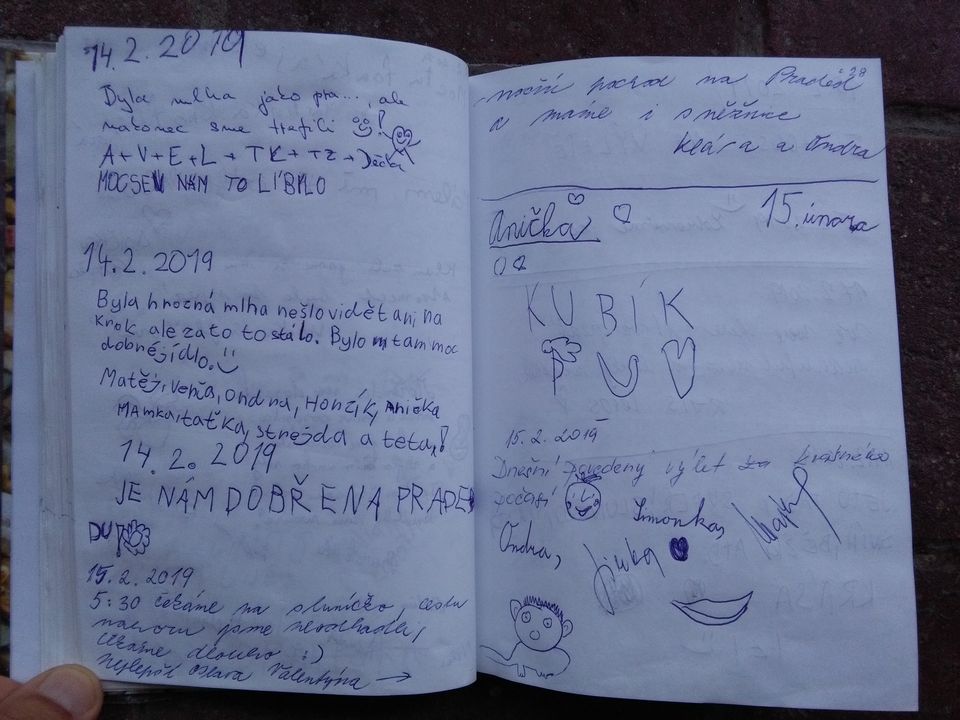 14.2.2019
Byla mlha jako pra..., ale
nakonec sme trefili !
A+V+E+L+TK+TZ+Dečka
MOC SE NÁM TO LÍBILO
14.2.2019
Byla hrozná mlha nešlo vidět ani na
krok, ale zato to stálo. Bylo tam moc
dobré jídlo.
Matěj, Verča, Ondra, Honzík, Anička
Mamka, taťka, strejda a teta!
14.2.2019
JE NÁM DOBŘE NA PRADĚ
DU
15.2.2019
5:30 čekáme na sluníčko, cestu
nahoru jsme
čekáme dlouho :)
Nejlepší oslava Valentýna →
noční pochod na Praděd
a máme i sněžnice
Klára a Ondra
Anička 15. února
KUBÍK
15.2.2019
Dnešní povedený výlet za krásného
počasí
Ondra, Jirka Simonka,